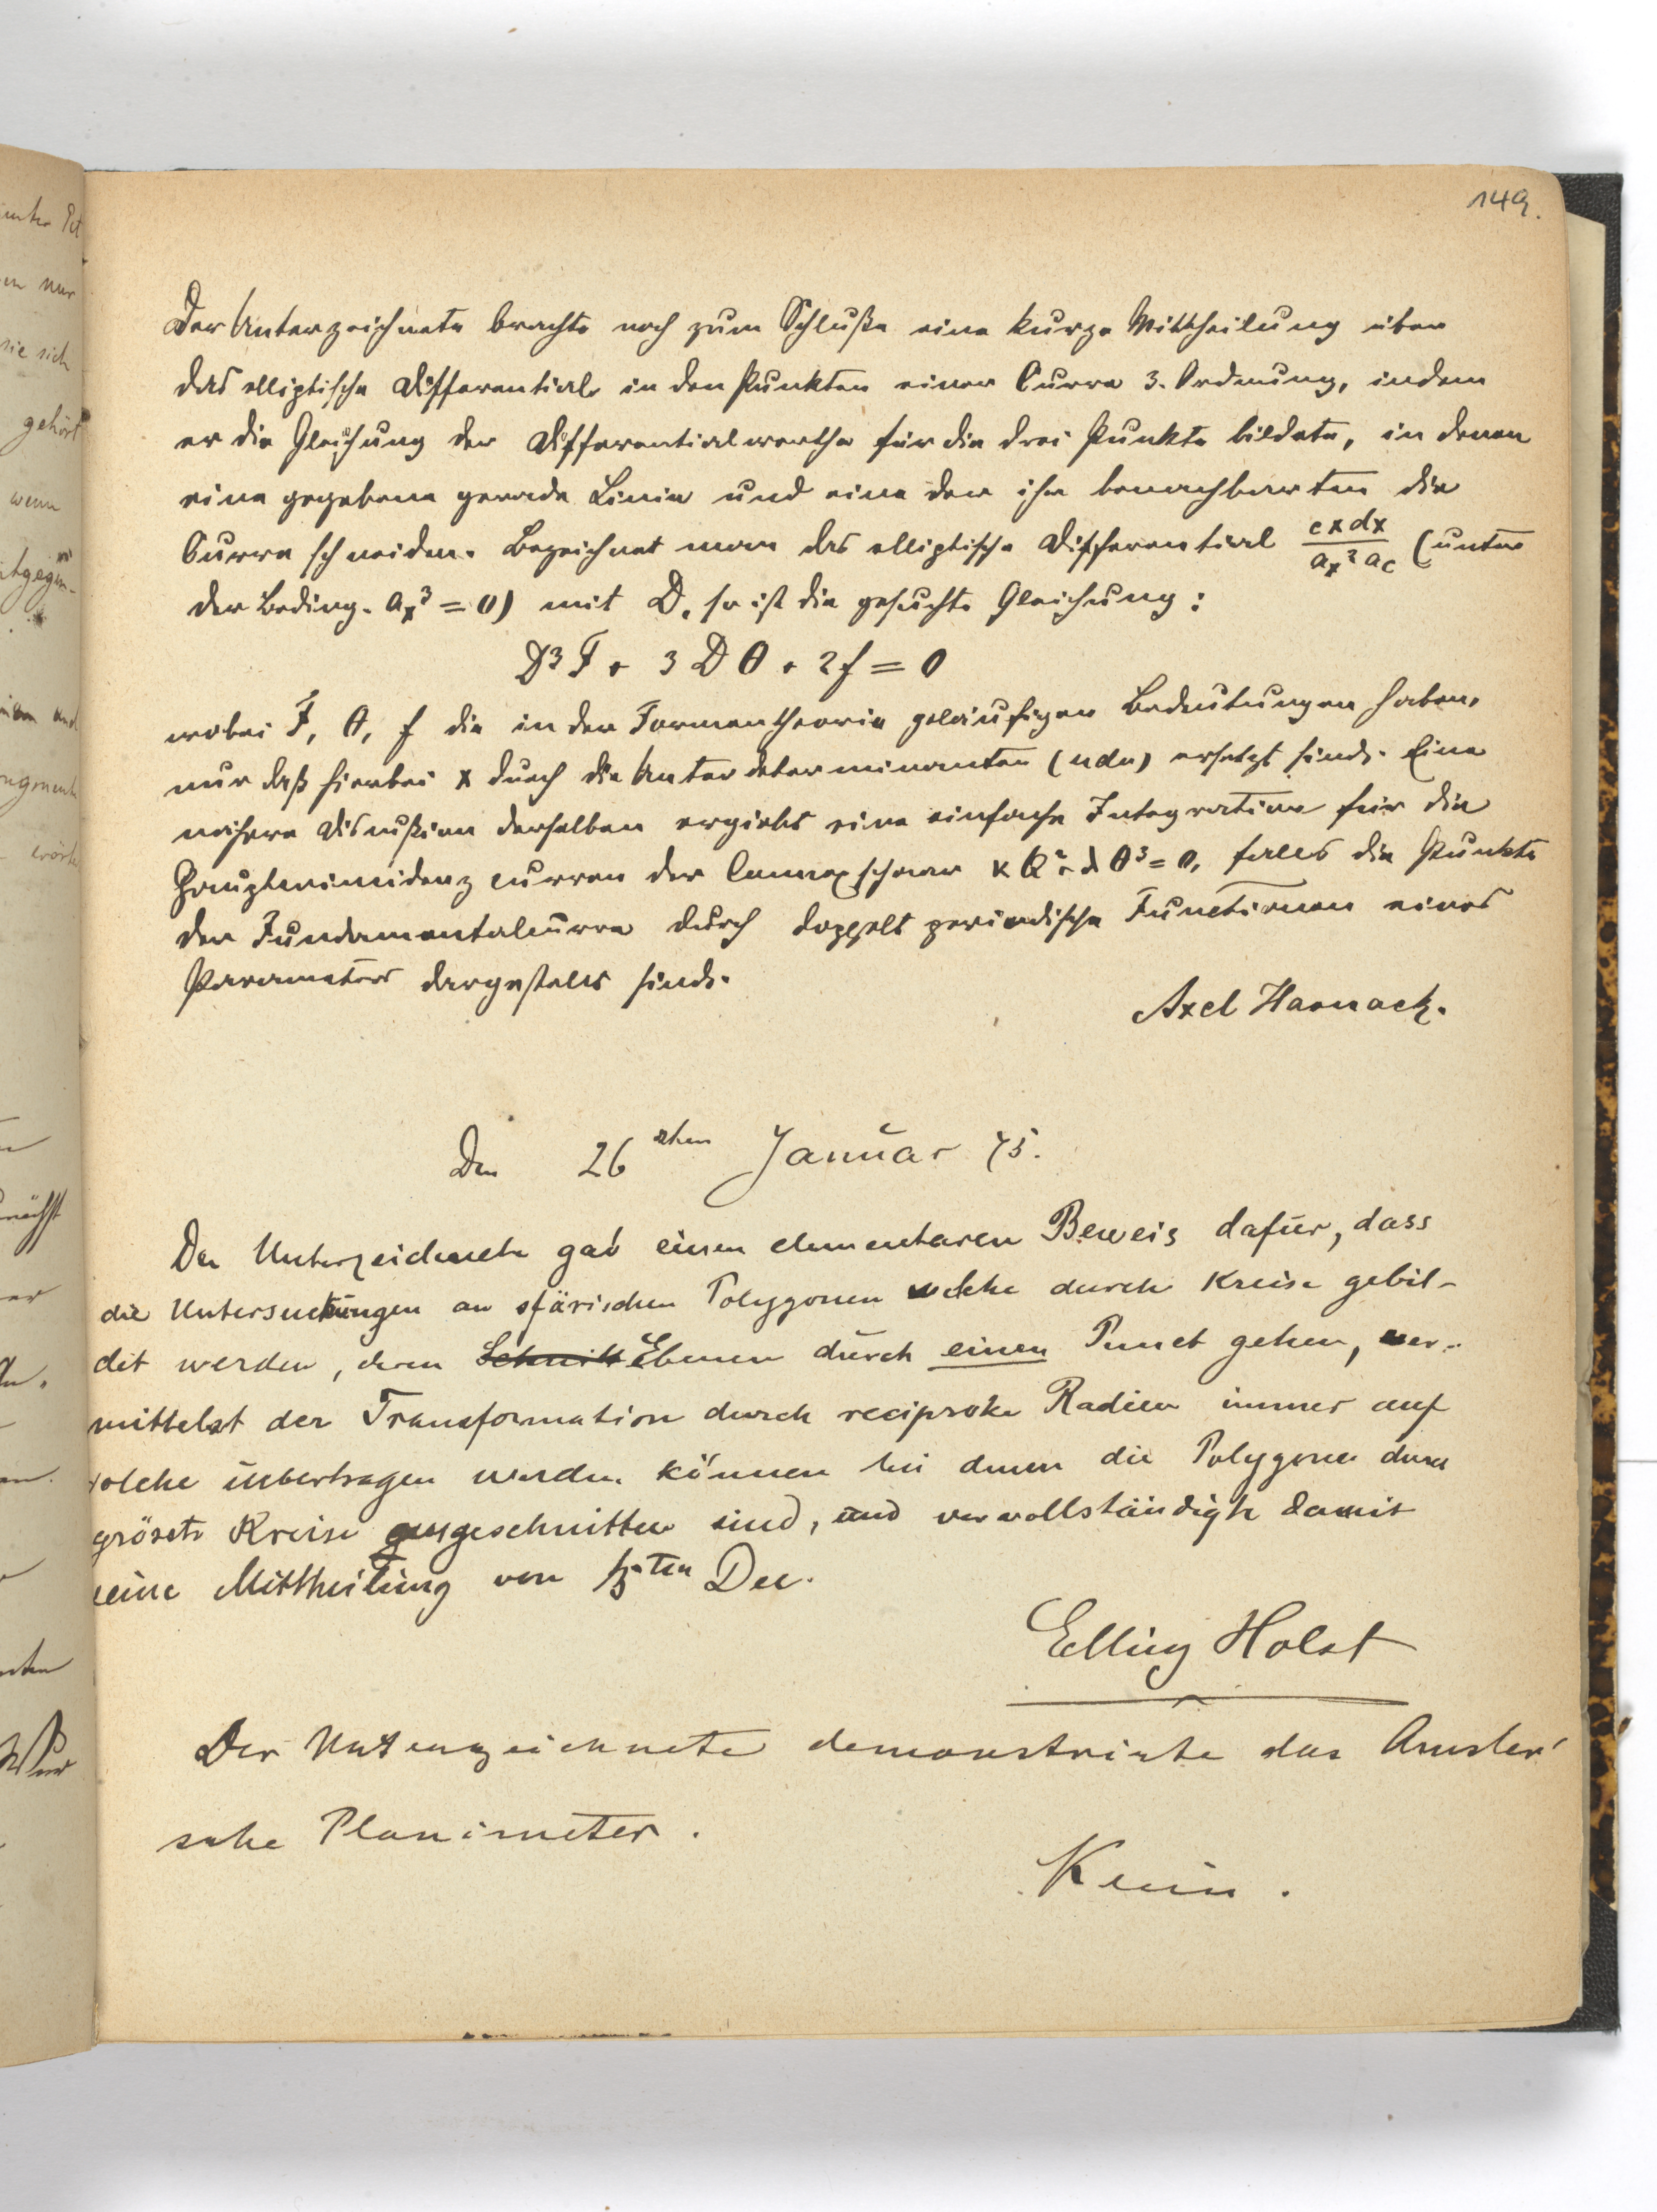 149.
Der Unterzeichnete brachte noch zum Schluße eine kurze Mittheilung über
das elliptische Differential in den Punkten einer Curve 3. Ordnung, indem
er die Gleichung der Differentialwerthe für die drei Punkte bildete, in denen
eine gegebene gerade Linie und eine der ihr benachbarten die
Curve schneiden. Bezeichnet man das elliptische Differential cxdx / a_x² a_c (unter
der Beding. a_x³ = 0) mit D, so ist die gesuchte Gleichung:
D³ F + 3 D θ + 2f = 0
wobei F, θ, f die in der Formentheorie geläufigen Bedeutungen haben,
nur daß hierbei x durch die Unterdeterminanten (udu) ersetzt sind. Eine
nähere Discußion derselben ergiebt eine einfache Integration für die
Hauptcoincidenzcurven der Connexschaar κ Q² + λ θ³ = 0, falls die Punkte
der Fundamentalcurve durch doppelt periodische Functionen eines
Parameters dargestellt sind.
Axel Harnack.
Den 26sten Januar 75.
Der Unterzeichnete gab einen elementaren Beweis dafür, dass
die Untersuchungen an sfärischen Polygonen welche durch Kreise gebil-
det werden, deren Schnitt Ebenen durch einen Punct gehen, ver-
mittelst der Transformation durch reciproke Radien immer auf
solche übertragen werden können bei denen die Polygone durch
grösste Kreise ausgeschnitten sind, und vervollständigte damit
seine Mittheilung von ten Dec.
Elling Holst
Der Unterzeichnete demonstrirte das Amsler'
sche Planimeter.
Klein.